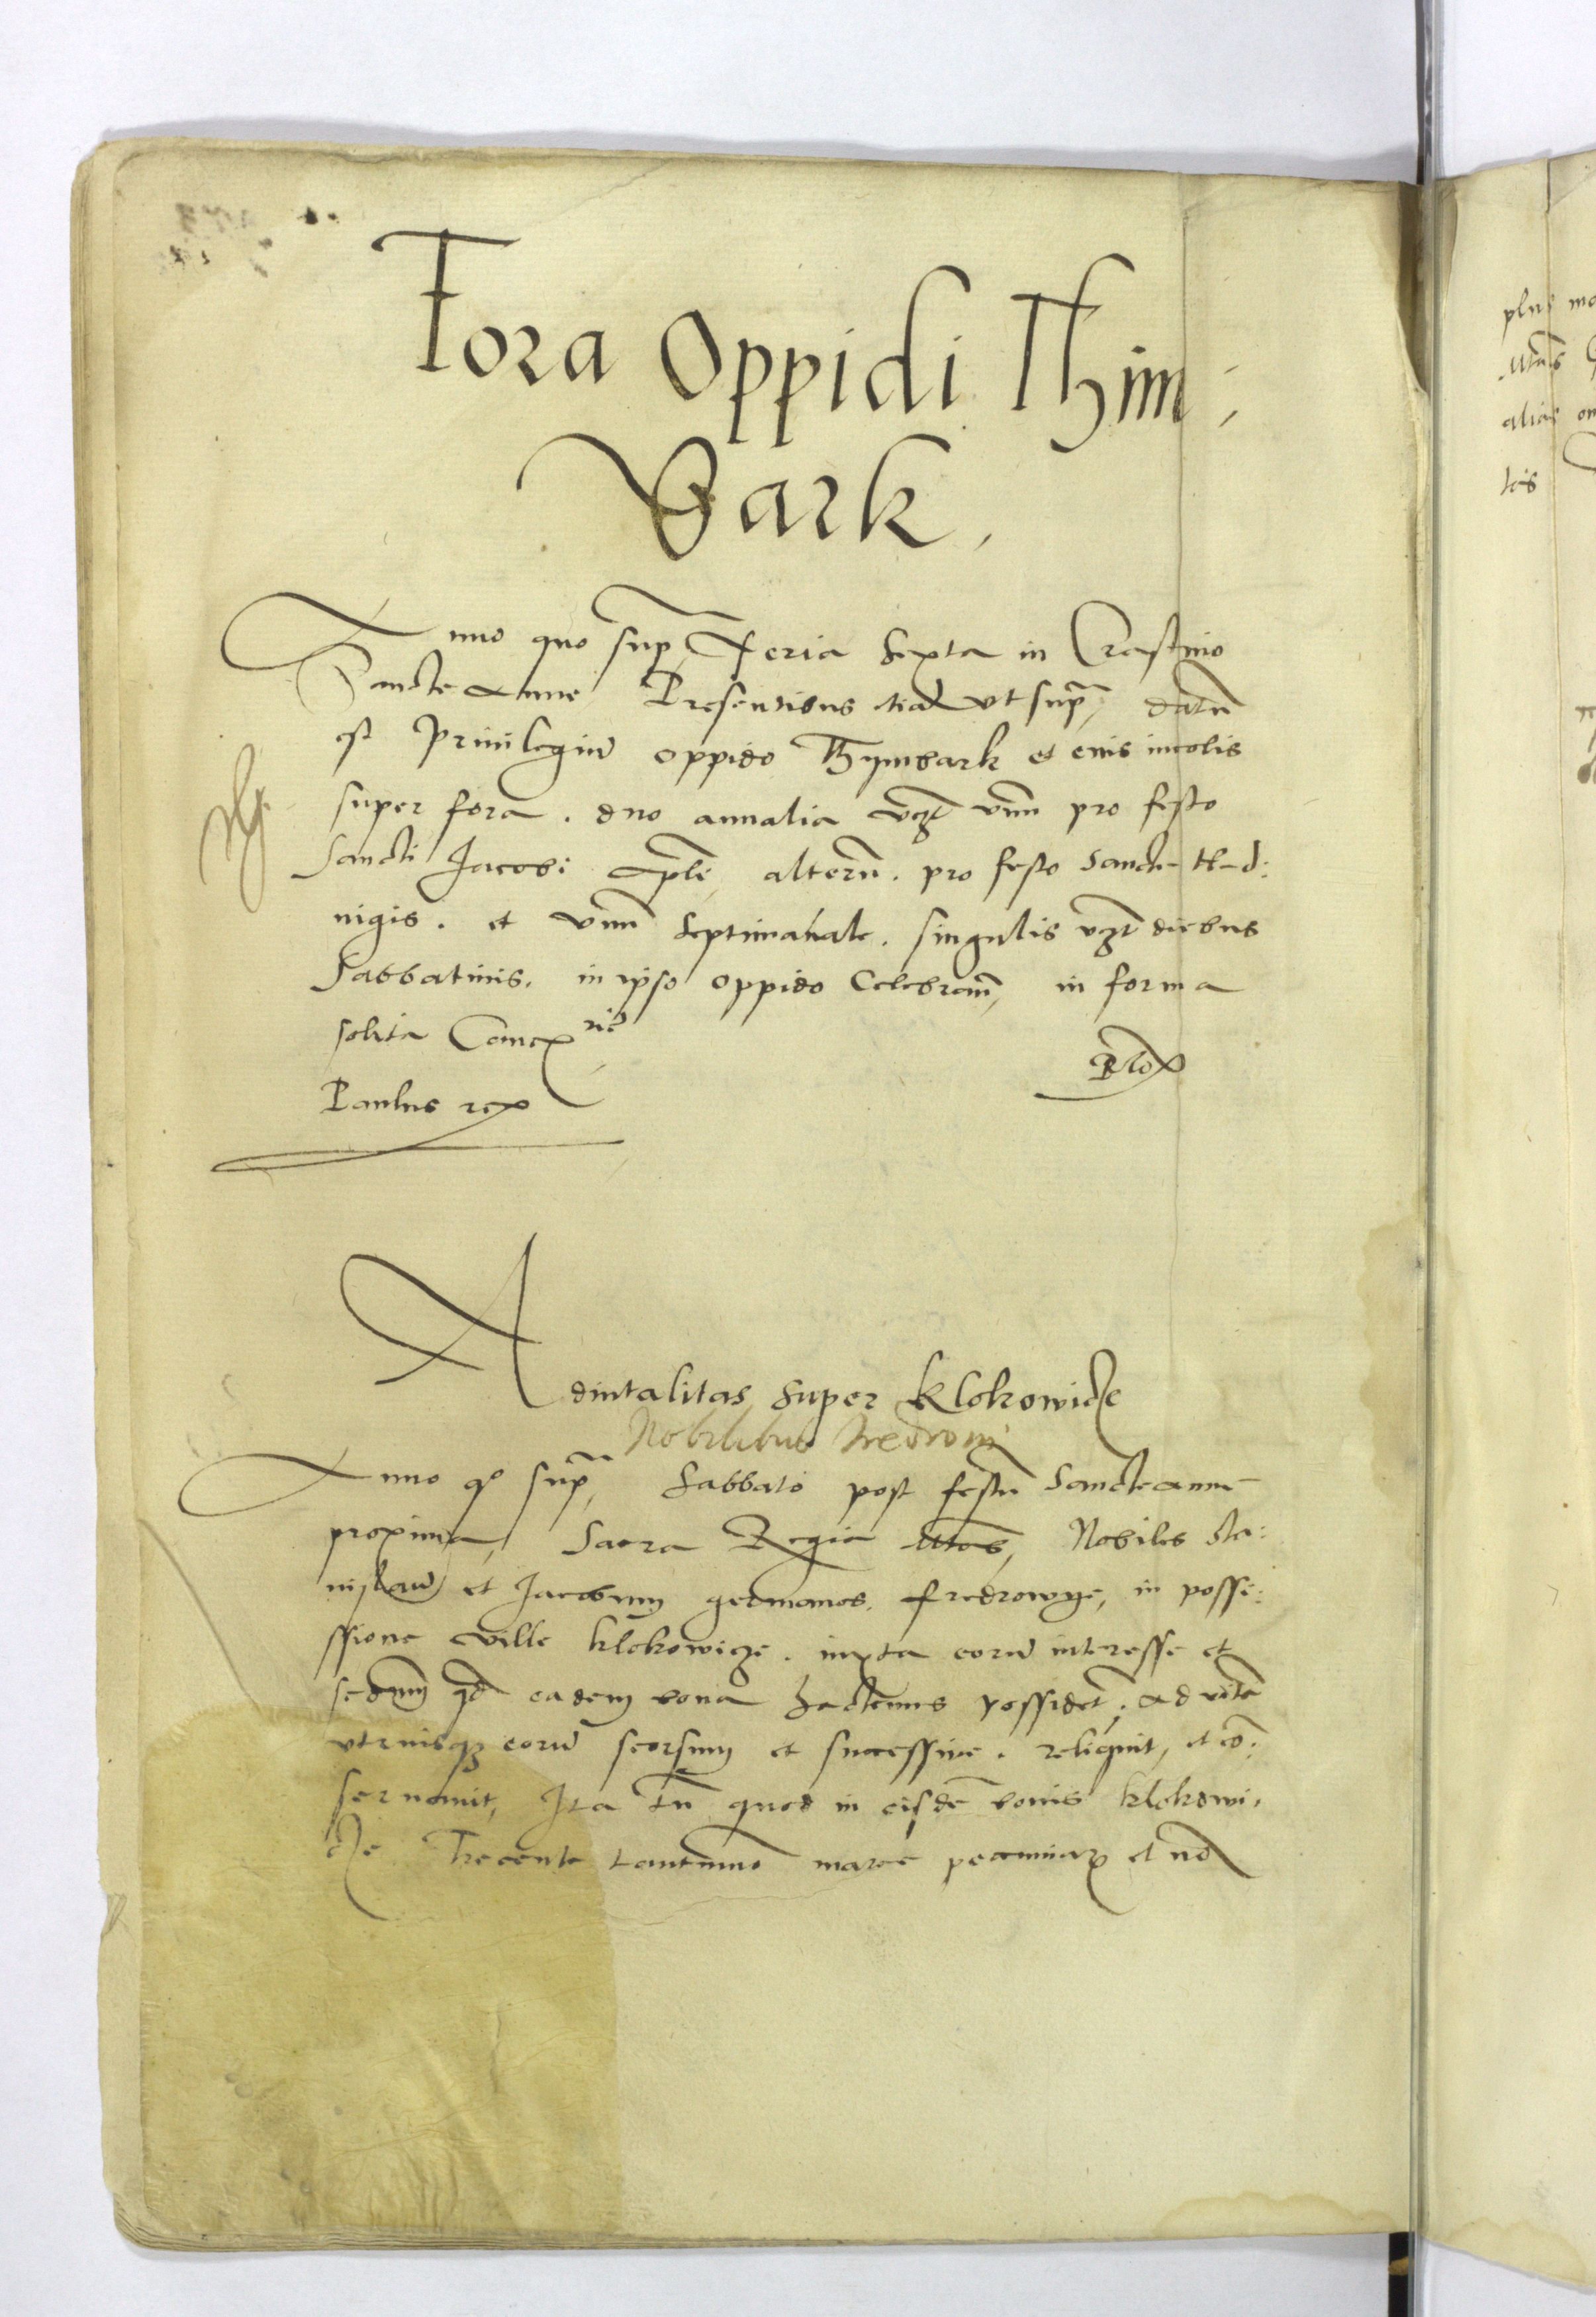 Fora Oppidi Thim-
bark,
Anno quo supra, Feria Sexta in Crastino
Sancte Anne Presentibus etiam ut supra, datum
est Privilegium oppido Thymbark et eius incolis
super fora. duo annalia vzt vnum pro festo
Sancti Jacobi Apli, alterum. pro festo Sancte Hed:
vigis. et vnum septimanale. singulis vzt diebus
Sabbatinis. in ipso oppido Celebrand, in forma
solita Cancrie
Paulus
Advitalitas super Klokowicze
Nobilibus Fredrom
Anno qo supra, Sabbato post festum Sancte Anne
proxima, Sacra Regia Mtas, Nobiles Sta:
nislaum et Jacobum germanos. Fredrowye, in posse:
ssione ville Klokowicze. iuxta eorum interesse et
secdum qd eadem bona hactenus possident, ad vitam
vtriusq eorum seorsum et successive. reliquit, et con:
servavit, Ita tn quod in eisdem bonis Klokowi.
cze Trecente tantummo marce pecuniar et non
plus
alias